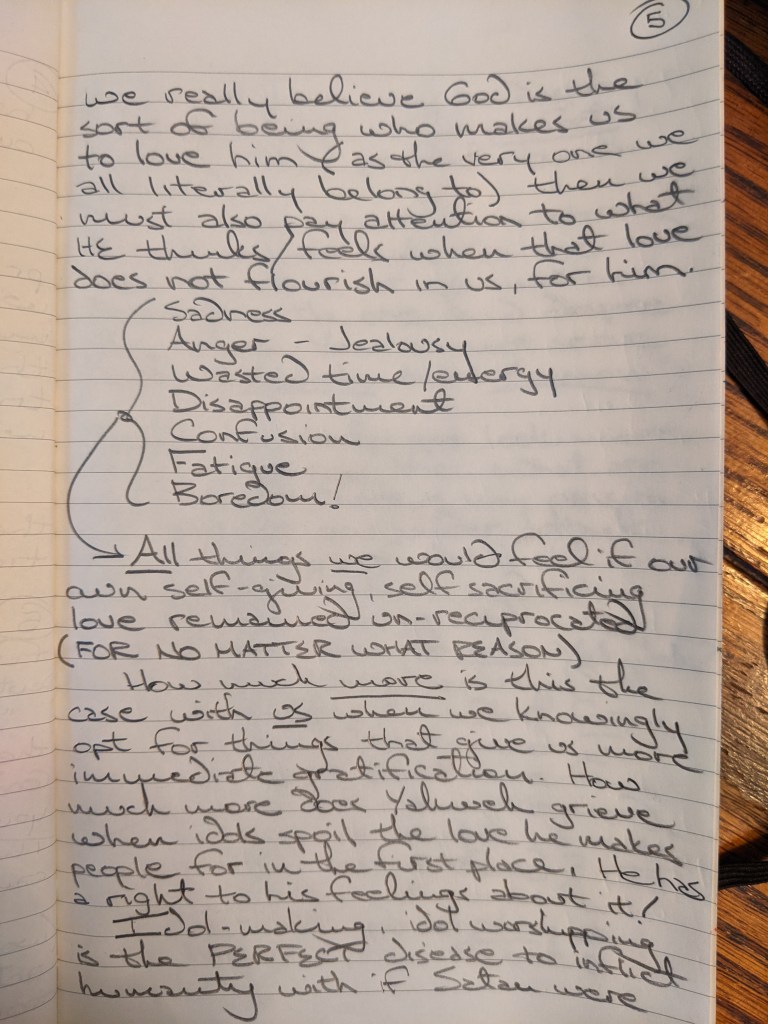 5
we really believe God is the
sort of being who makes us
to love him (as the very one we
all literally belong to) then we
must also pay attention to what
HE thinks/feels when that love
does not flourish in us, for him.
Sadness
Anger - Jealousy
Wasted time/energy
Disappointment
Confusion
Fatigue
Boredom!
All things we would feel if our
own self-giving, self sacrificing
love remained un-reciprocated
(FOR NO MATTER WHAT REASON)
How much more is this the
case with us when we knowingly
opt for things that give us more
immediate gratification. How
much more does Yahweh grieve
when idols spoil the love he makes
people for in the first place. He has
a right to his feelings about it!
Idol-making, idol worshipping
is the PERFECT disease to inflict
humanity with if Satan were